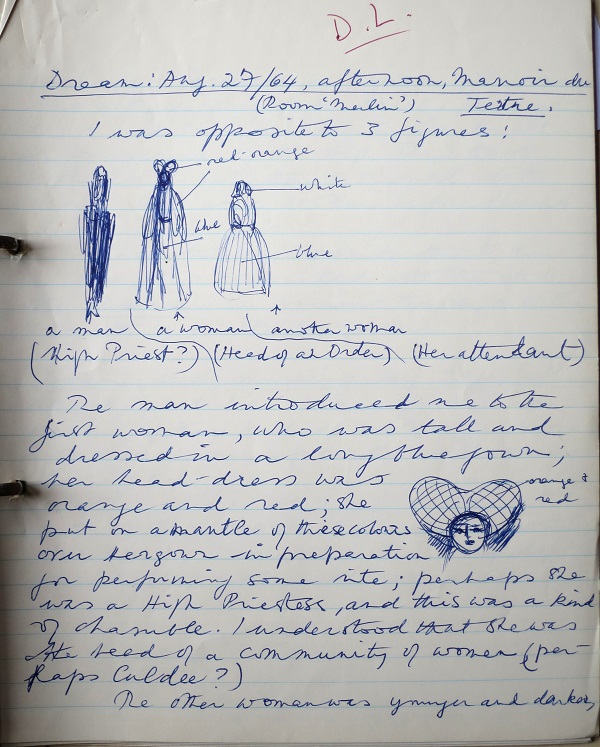 D.L.
Dream: Aug. 27/64, afternoon, Manoir du
(Room 'Merlin') Tertre.
I was opposite to 3 figures:
red-orange
white
blue
blue
a man (a woman (another woman
(High Priest?) (Head of an Order) (Her attendant)
The man introduced me to the
first woman, who was tall and
dressed in a long blue gown;
her head-dress was
orange &
red
orange and red; she
put on a mantle of these colours
over her gown in preparation
for performing some rite; perhaps she
was a High Priestess, and this was a kind
of chasuble. I understood that she was
the head of a community of women (per-
haps Culdee?)
The other woman was younger and darker,